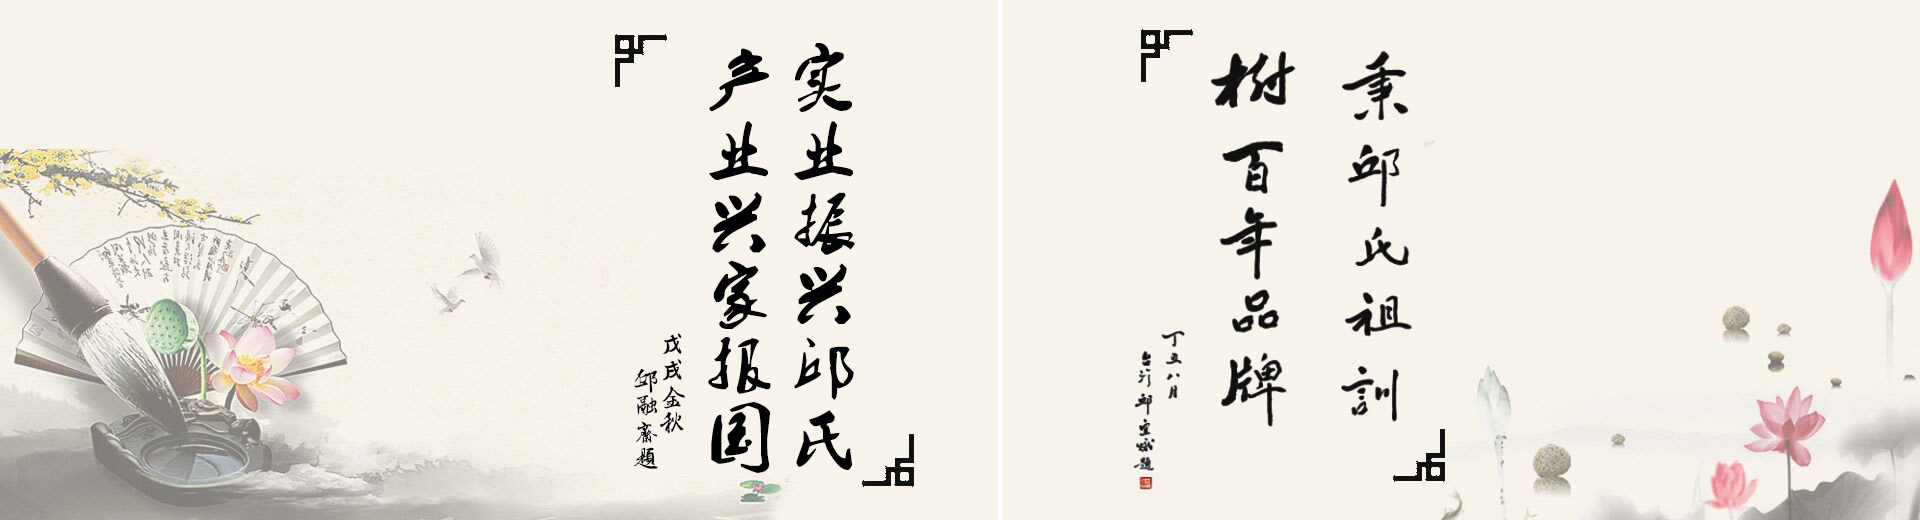 实业振兴邱氏
产业兴家报国
戊戌金秋
邱融斋题
秉邱氏祖訓
樹百年品牌
丁丑八月